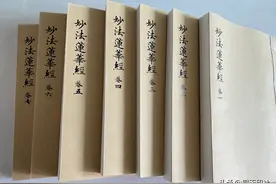 妙法蓮華經 卷七
妙法蓮華經 卷六
妙法蓮華經 卷五
妙法蓮華經 卷四
妙法蓮華經 卷三
妙法蓮華經 卷二
妙法蓮華經 卷一